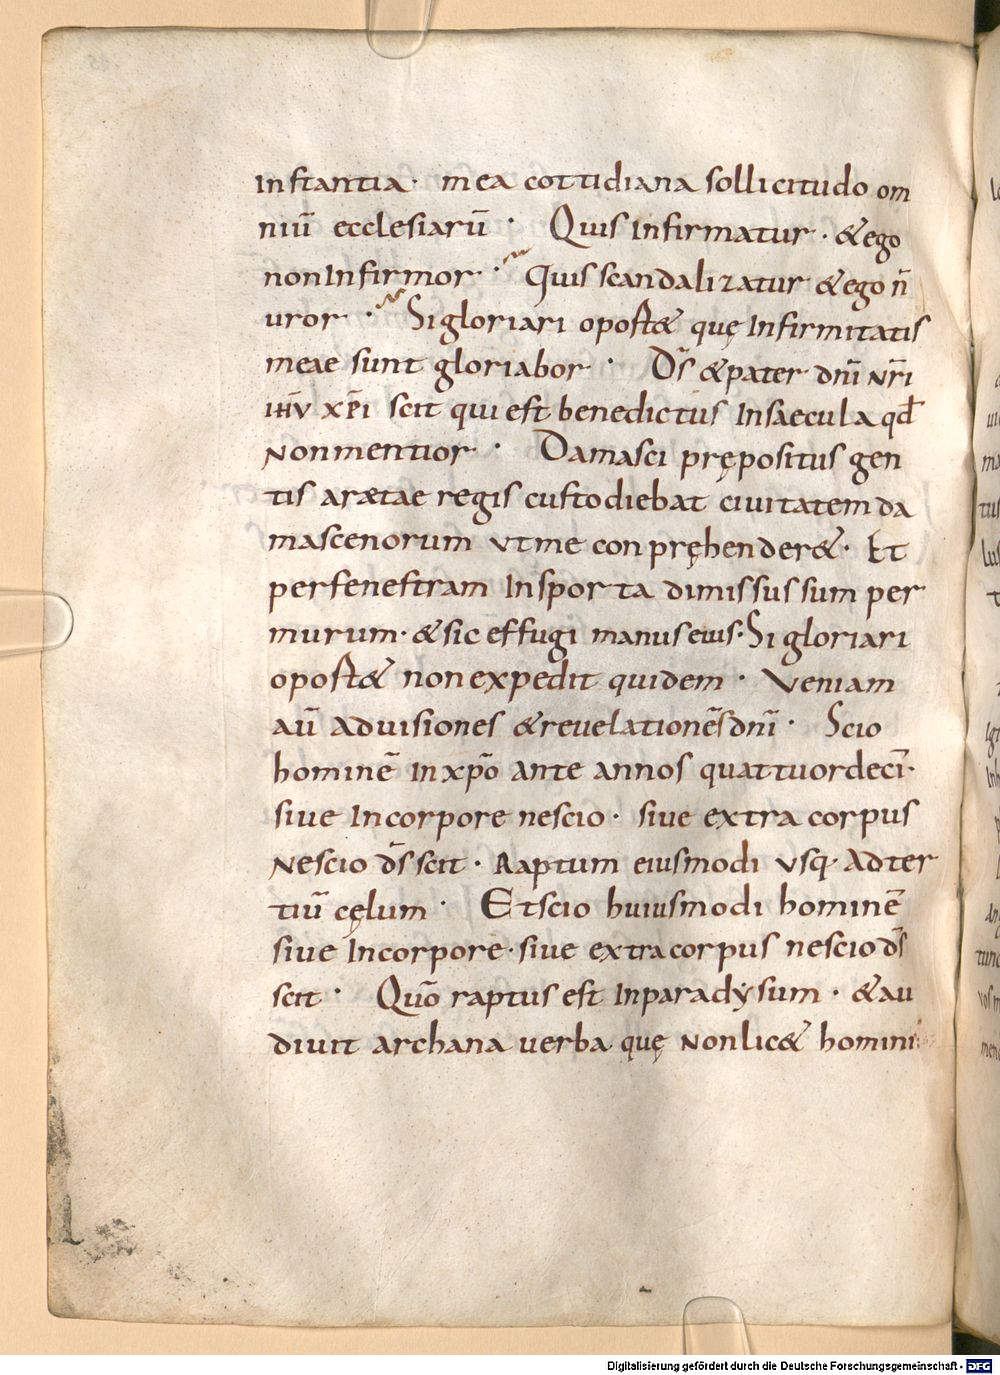 Instantia· mea cottidiana sollicitudo om
niū ecclesiarū · Quis Infirmatur · & ego
non Infirmor · Quis scandalizatur & ego n̄
uror · Si gloriari oport& quę Infirmitatis
meae sunt gloriabor · Ds̄ & pater dnī nr̄i
ihū xp̄i scit qui est benedictus In saecula qd̄
Non mentior · Damasci prępositus gen
tis arætae regis custodiebat ciuitatem da
mascenorum ut me con pręhender& · Et
per fenestram In sporta dimissus sum per
murum· & sic effugi manus eius· Si gloriari
oport& non expedit quidem · Veniam
aū ad uisiones & reuelationēs dnī · Scio
hominē In xpō ante annos quattuordecī·
siue In corpore nescio · siue extra corpus
Nescio ds̄ scit · Raptum eiusmodi usq· ad ter
tiū cęlum · Et scio huiusmodi hominē
siue In corpore· siue extra corpus nescio ds̄
scit · Quō raptus est In paradẏsum · & au
diuit archana uerba quę Non lic& homini
Digitalisierung gefördert durch die Deutsche Forschungsgemeinschaft - DFG